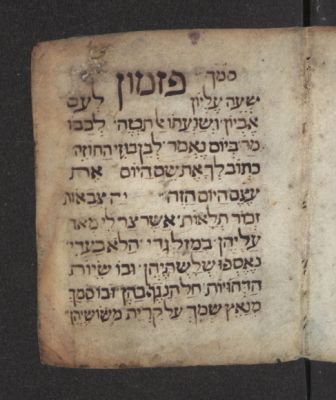 סמך
פזמון
ישעה עליון לעם
אביון ושועתו תבזה
מר ביום נאמר לבן בוזי החוזה
כתוב לך את שם היום את
עצם היום הזה יה צבאות
זכור תלאות אשר צר לי מאד
עליהן גדי הלא בעדי
נאספו שלשתיהן ובו שיות
הדחויות חלה נגף בהן ובו סמך
מנאץ שמך על קרית משושיהן